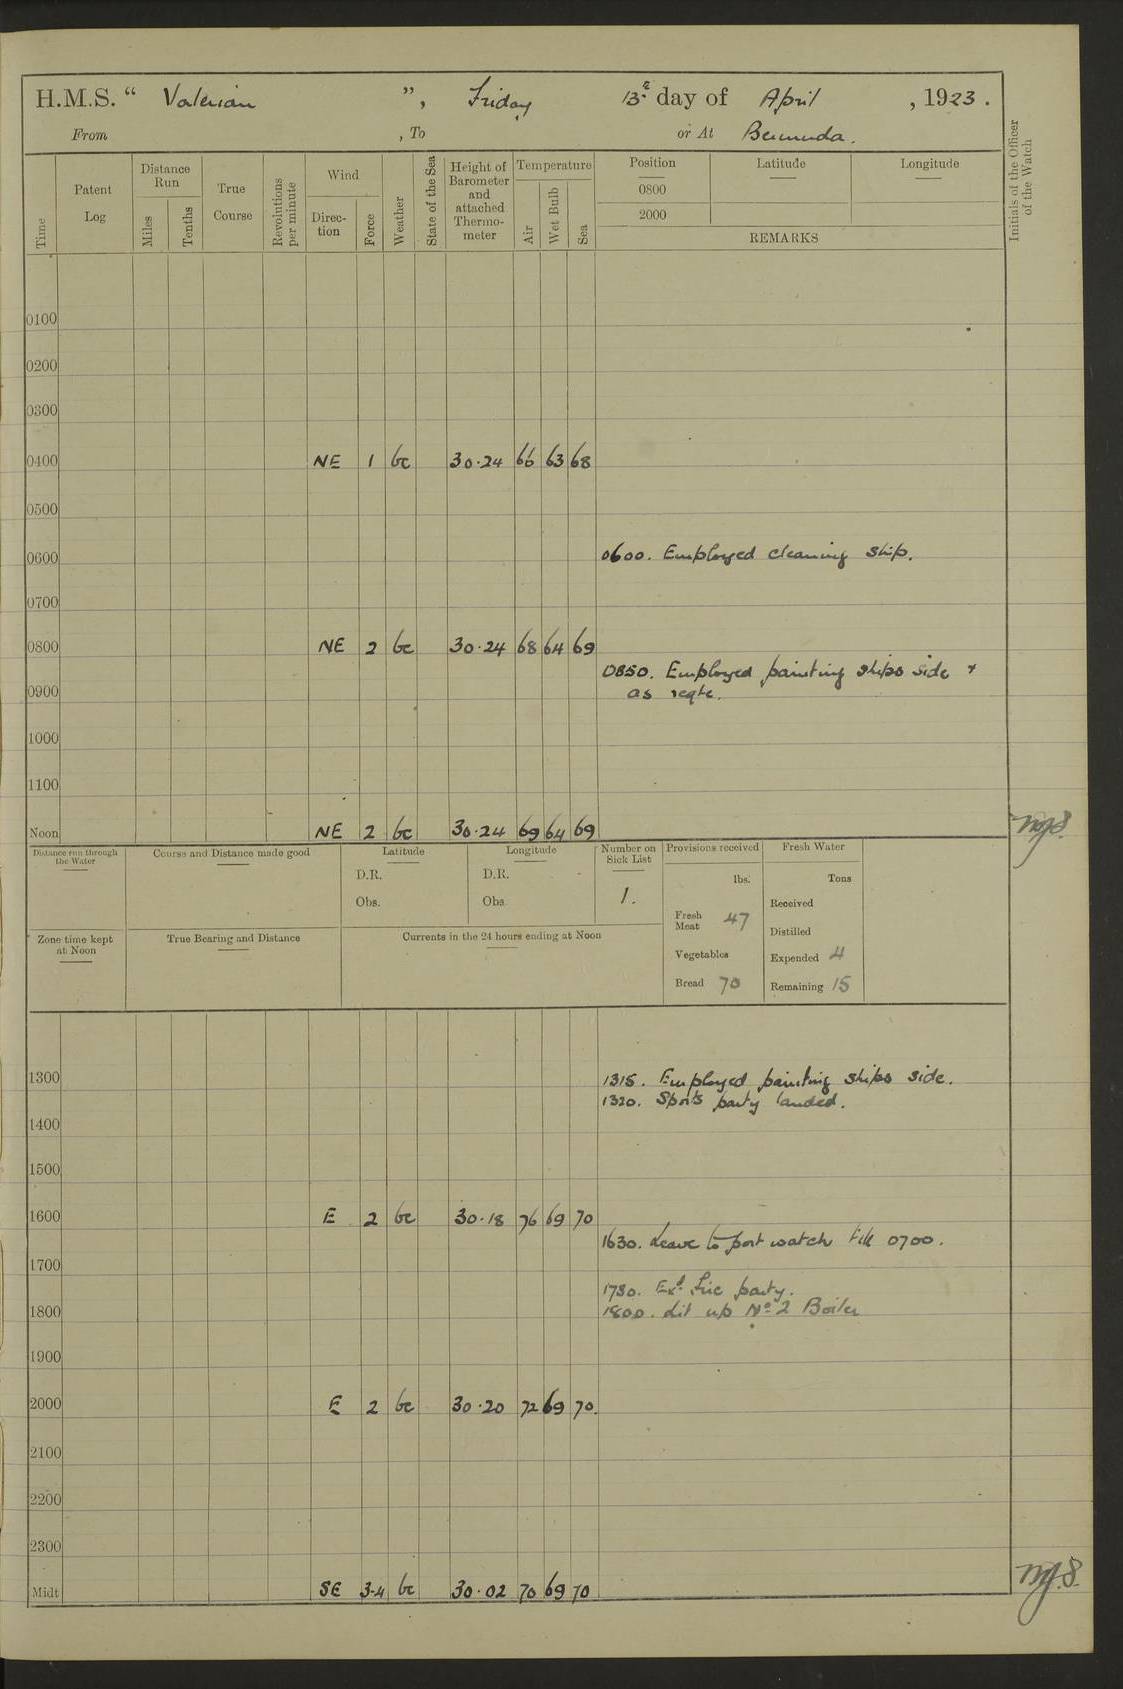 H.M.S. “ Valerian ”, Friday 13th day of April , 1923 .
From , To or At Bermuda.
Time
Patent Log
Distance Run
Miles
Tenths
True Course
Revolutions per minute
Wind
Direc-tion
Force
Weather
State of the Sea
Height of Barometer and attached Thermo-meter
Temperature
Air
Wet Bulb
Sea
Position
0800
2000
Latitude
Longitude
REMARKS
Initials of the Officer of the Watch
0100
0200
0300
0400 NE 1 bc 30.24 66 63 68
0500
0600 0600. Employed cleaning ship.
0700
0800 NE 2 bc 30.24 68 64 69
0850. Employed painting ships side +
0900 as reqte.
1000
1100
Noon NE 2 bc 30.24 69 64 69
Distance run through the Water
Course and Distance made good
Latitude
D.R.
Obs.
Longitude
D.R.
Obs
Number on Sick List
1.
Provisions received
lbs.
Fresh Meat 47
Vegetables
Bread 70
Fresh Water
Tons
Received
Distilled
Expended 4
Remaining 15
Zone time kept at Noon
True Bearing and Distance
Currents in the 24 hours ending at Noon
1300 1315. Employed painting ships side.
1320. Sports party landed.
1400
1500
1600 E 2 bc 30.18 76 69 70
1630. Leave to port watch till 0700.
1700
1730. Exd. Fire party.
1800 1800. Lit up No 2 Boiler
1900
2000 E 2 bc 30.20 72 69 70.
2100
2200
2300
Midt SE 3-4 bc 30.02 70 69 70